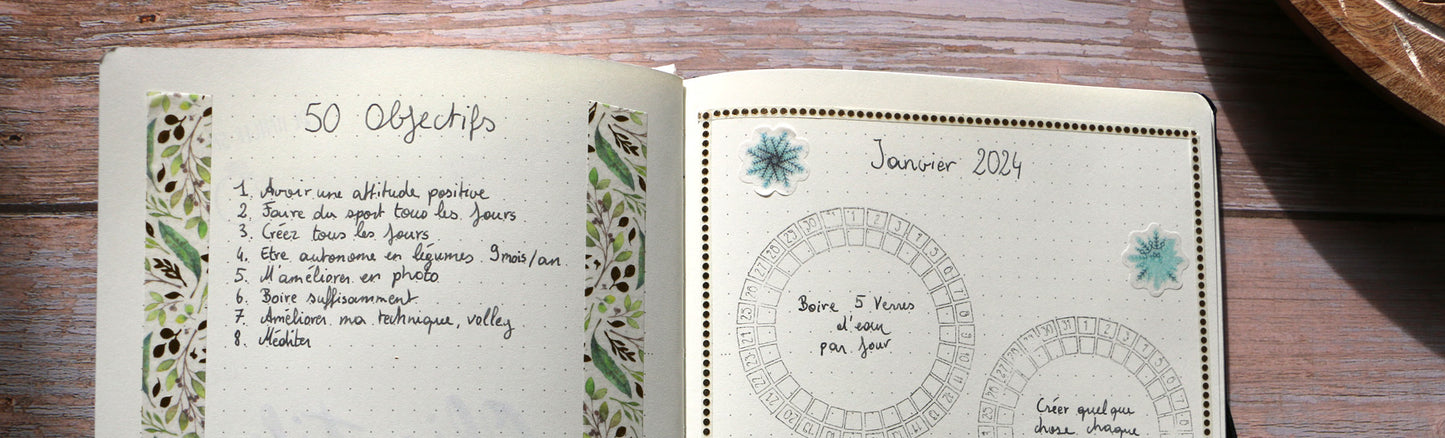 50 Objectifs
1. Avoir une attitude positive
2. Faire du sport tous les jours
3. Créez tous les jours
4. Etre autonome en légumes 9mois/an
5. M'améliorer en photo
6. Boire suffisamment
7. Améliorer ma technique, volley
8. Méditer
Janvier 2024
Boire 5 Verres
d'eau
par jour
Créer quelque
chose chaque